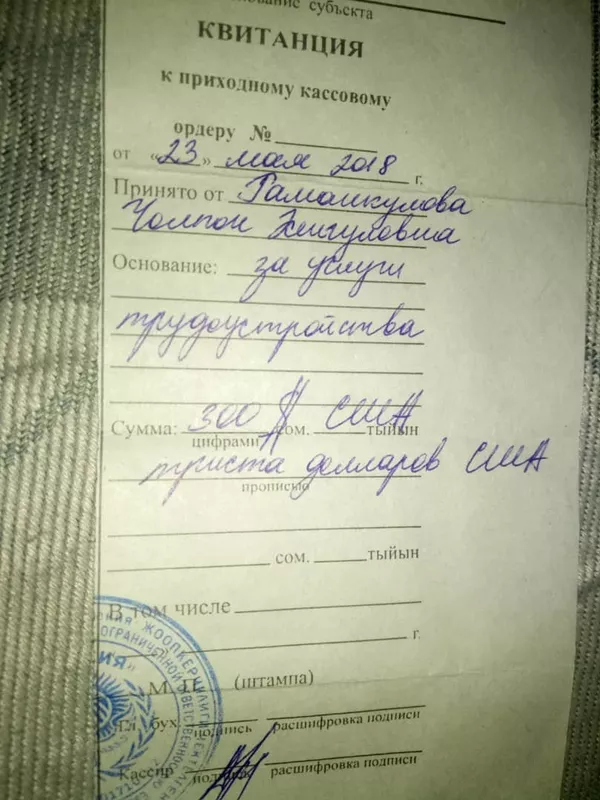 ование субъекта
КВИТАНЦИЯ
к приходному кассовому
ордеру №
от «23» мая 2018 г.
Принято от Раманкулова
Чолпон Жигуловна
Основание: за услуги
трудоустройства
Сумма: 300 $ США сом. тыйын
цифрами
триста долларов США
прописью
сом. тыйын
В том числе
г.
М. П. (штампа)
Гл. бух.
подпись расшифровка подписи
Кассир
подпись расшифровка подписи
ЖООПКЕРЧИЛИГИ
ОГРАНИЧЕННОЙ ОТВЕТСТВЕННОСТЬЮ